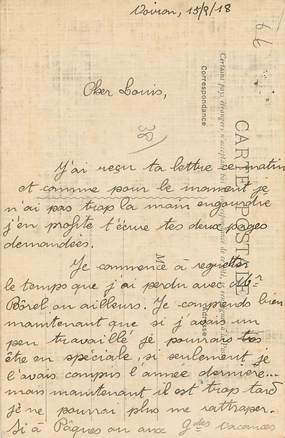 Voiron, 15/8/18
Cher Louis,
J'ai reçu ta lettre ce matin
et comme pour le moment je
n'ai pas trop la main engourdie
j'en profite t'écrire tes deux pages
demandées.
Je commence à regretter
le temps que j'ai perdu avec
Borel ou ailleurs. Je comprends bien
maintenant que si j'avais un
peu travaillé je pourrais
être en spéciale, si seulement je
l'avais compris l'année dernière...
mais maintenant il est trop tard
je ne pourrai plus me rattraper.
Si à Pâques ou aux gdes vacances
CARTE POSTALE
Correspondance